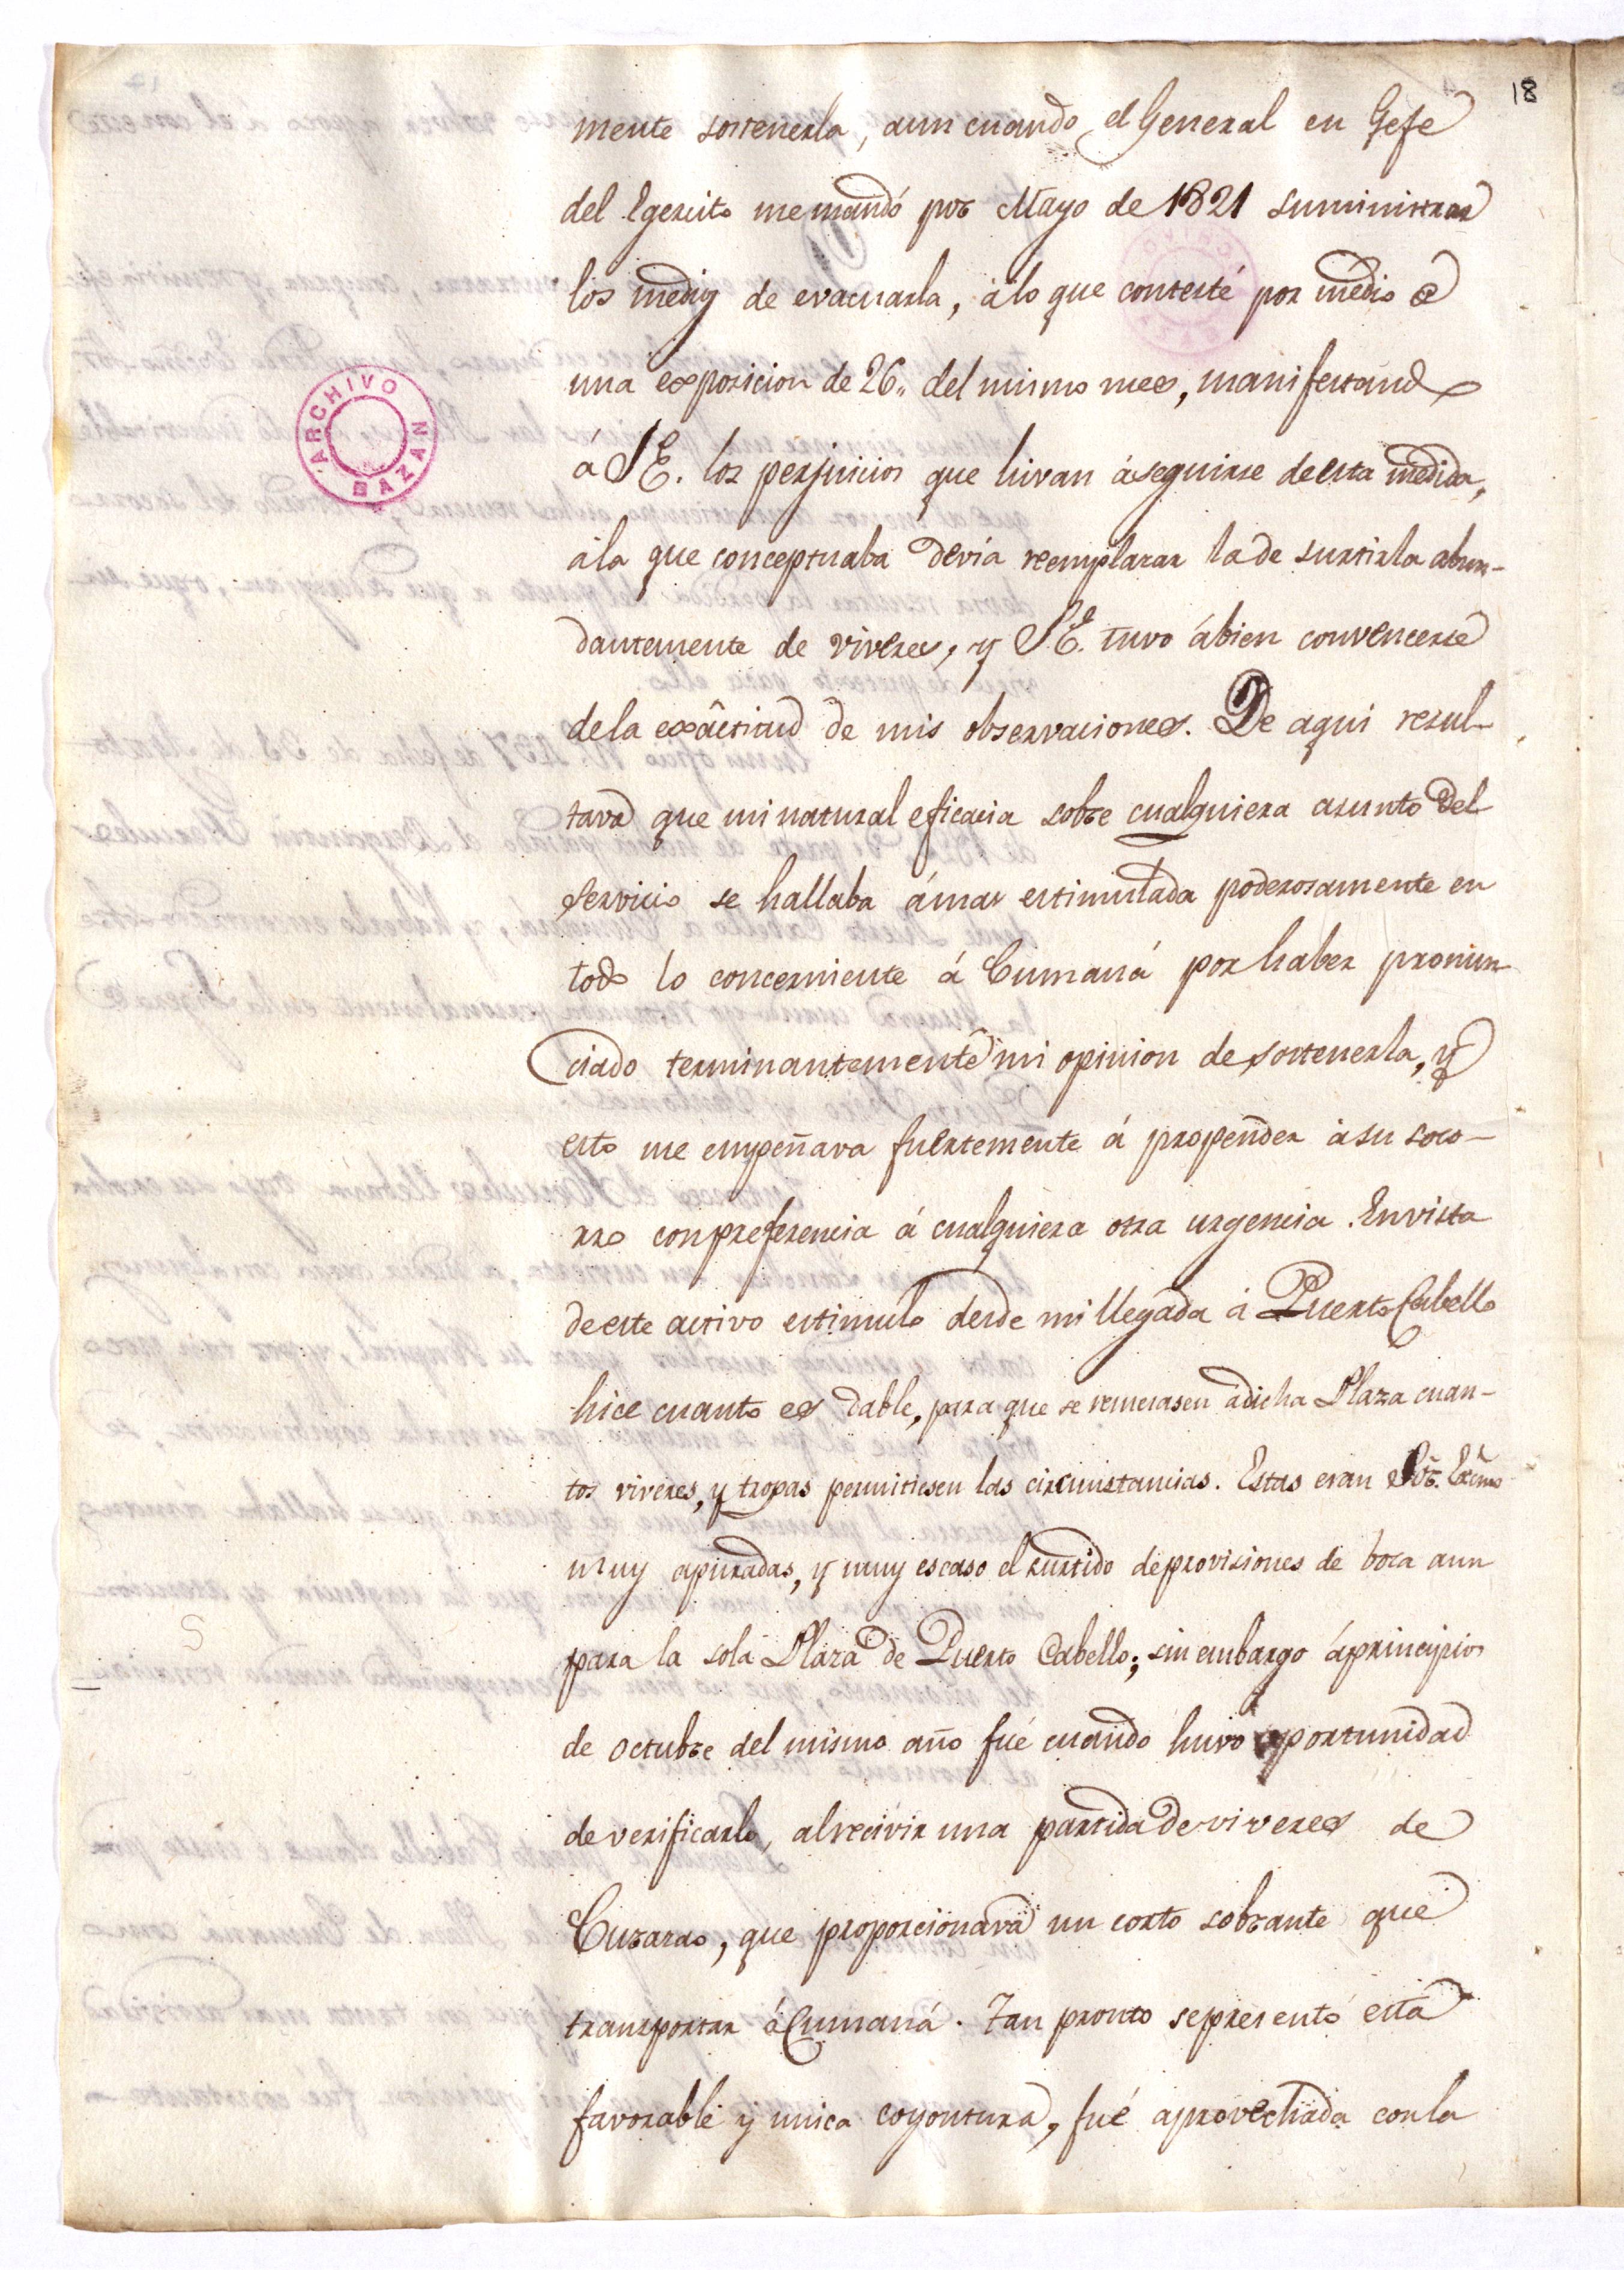 18
mente sostenerla, aun cuando el General en Gefe
del Egercito me mandó por Mayo de 1821 suministrar
los medios de evacuarla, á lo que contesté por medio de
una exposicion de 26,, del mismo mes, manifestando
á S.E. los perjuicios que hivan á seguirse de esta medida,
á la que conceptuaba devia reemplazar la de surtirla abun-
dantemente de viveres, y S.E. tuvo á bien convencerse
de la exâctitud de mis observaciones. De aqui resul-
tará que mi natural eficacia sobre cualquiera asunto del
servicio se hallaba ámas estimulada poderosamente en
todo lo concerniente á Cumaná por haber pronun-
ciado terminantemente mi opinion de sostenerla, y
esto me empeñava fuertemente á propender á su soco-
rro con preferencia á cualquiera otra urgencia. En vista
de este activo estimulo desde mi llegada á Puerto Cabello
hice cuanto es dable, para que se remesasen á dicha Plaza cuan-
tos viveres, y tropas permitiesen las circunstancias. Estas eran Sor. Excmo
muy apuradas, y muy escaso el surtido de provisiones de boca aun
para la sola Plaza de Puerto Cabello; sin embargo á principios
de octubre del mismo año fué cuando huvo oportunidad
de verificarlo, al recivir una partida de viveres de
Curazao, que proporcionava un corto sobrante que
transportar á Cumaná. Tan pronto se presentó esta
favorable y unica coyontura, fué aprovechada con la
ARCHIVO
BAZAN